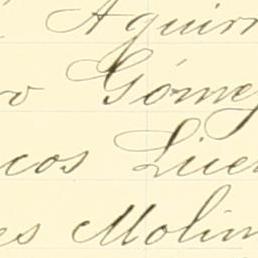 Aguirr
o Gómez
cos Lue
es Molin